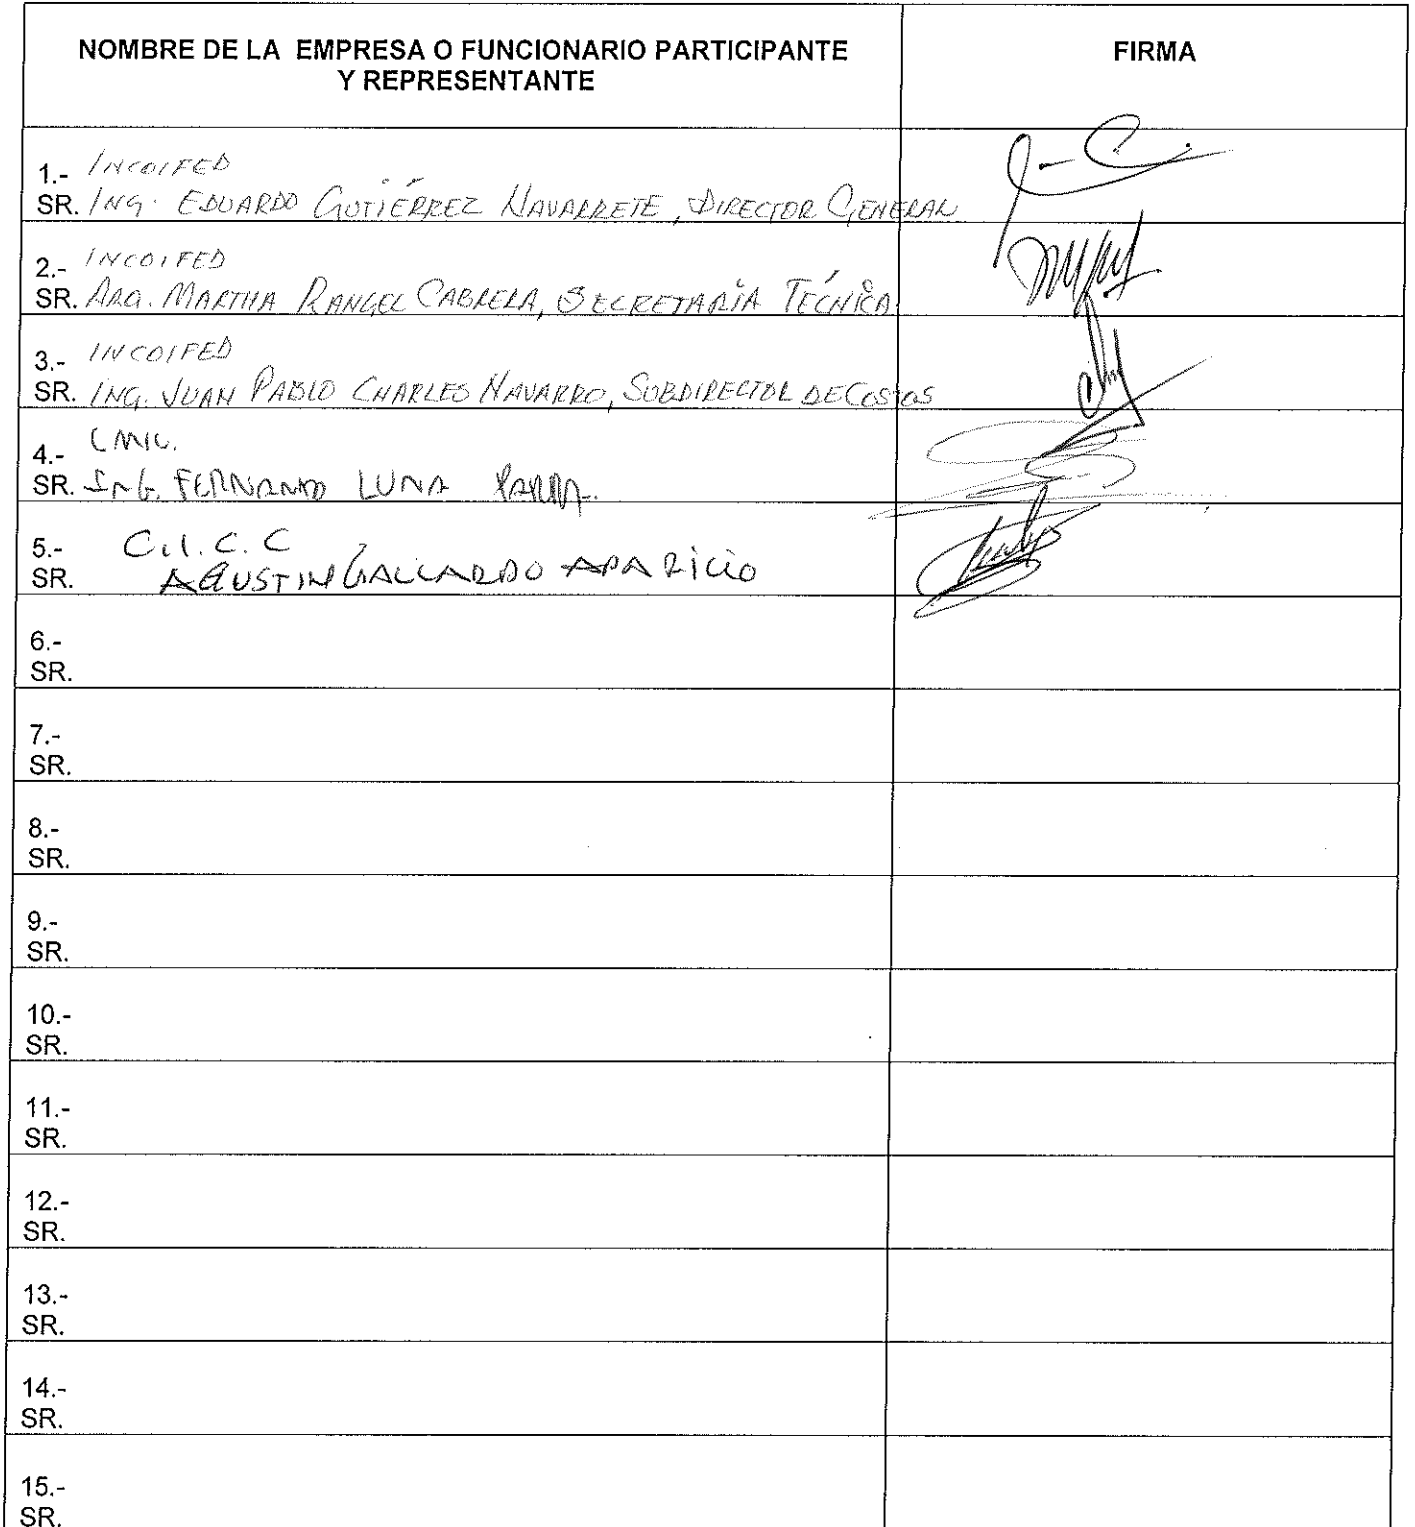 NOMBRE DE LA EMPRESA O FUNCIONARIO PARTICIPANTE
Y REPRESENTANTE
FIRMA
1.- INCOIFED
SR. ING. EDUARDO GUTIÉRREZ NAVARRETE, DIRECTOR GENERAL
2.- INCOIFED
SR. ARQ. MARTHA RANGEL CABRERA, SECRETARÍA TÉCNICA
3.- INCOIFED
SR. ING. JUAN PABLO CHARLES NAVARRO, SUBDIRECTOR DE COSTOS
4.- CMIC.
SR. ING. FERNANDO LUNA
5.- C.I.C.C
SR. AGUSTIN GALLARDO APARICIO
6.-
SR.
7.-
SR.
8.-
SR.
9.-
SR.
10.-
SR.
11.-
SR.
12.-
SR.
13.-
SR.
14.-
SR.
15.-
SR.